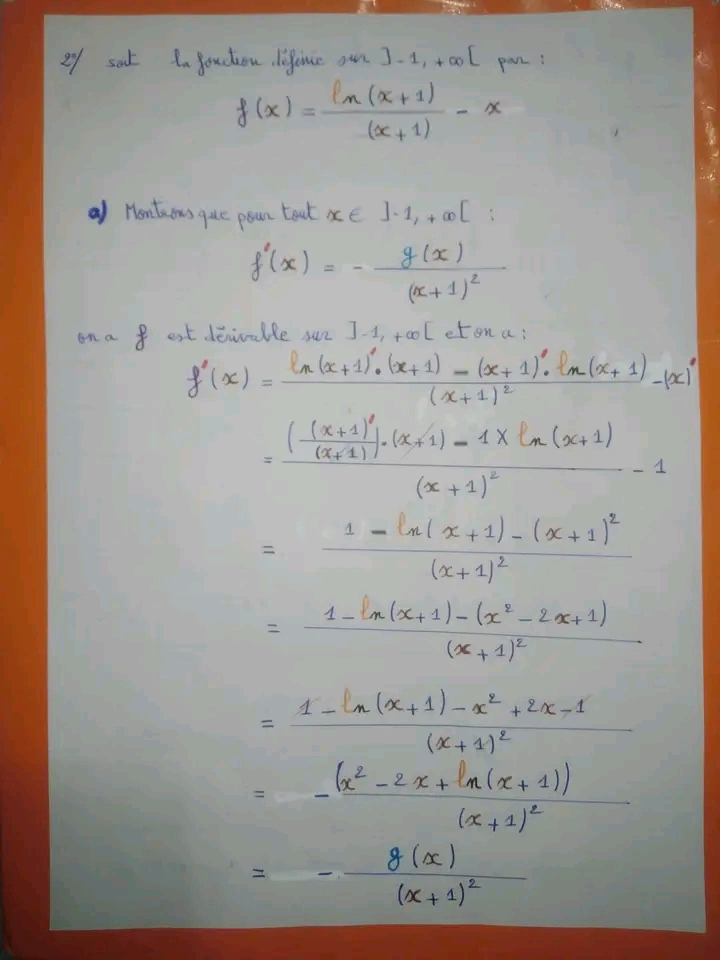 2°/ soit la fonction définie sur ]-1, +∞[ par :
f(x) = ln(x+1)/(x+1) - x
a) Montrons que pour tout x ∈ ]-1, +∞[ :
f'(x) = - g(x)/(x+1)²
on a f est dérivable sur ]-1, +∞[ et on a :
f'(x) = (ln(x+1)'.(x+1) - (x+1)'.ln(x+1))/(x+1)² - (x)'
= (((x+1)'/(x+1)).(x+1) - 1 × ln(x+1))/(x+1)² - 1
= (1 - ln(x+1) - (x+1)²)/(x+1)²
= (1 - ln(x+1) - (x² - 2x + 1))/(x+1)²
= (1 - ln(x+1) - x² + 2x - 1)/(x+1)²
= -(x² - 2x + ln(x+1))/(x+1)²
= - g(x)/(x+1)²